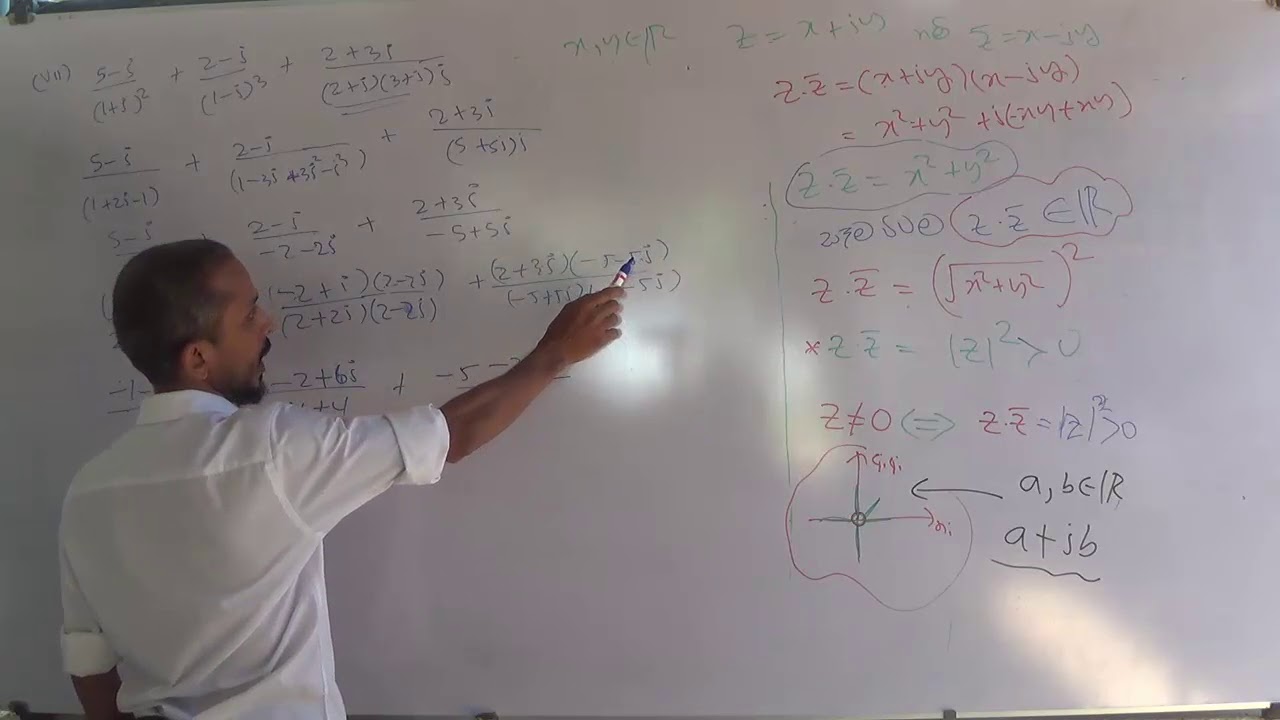 (VII) (5-i)/(1+i)² + (2-i)/(1-i)³ + (2+3i)/((2+i)(3+i)i)
(5-i)/(1+2i-1) + (2-i)/(1-3i+3i²-i³) + (2+3i)/((5+5i)i)
5-i + (2-i)/(-2-2i) + (2+3i)/(-5+5i)
(-2+i)(2-2i)/(2+2i)(2-2i) + (2+3i)(-5-5i)/(-5+5i)( -5i)
-2+6i + -5
+4
x,y∈ℝ z = x+iy z̄=x-iy
z.z̄ =(x+iy)(x-iy)
= x²+y² +i(-xy+xy)
z.z̄ = x²+y²
z.z̄ ∈ℝ
z.z̄ = (√x²+y²)²
*z.z̄ = |z|²>0
z≠0 ⟺ z.z̄=|z|²>0
a,b∈ℝ
a+ib